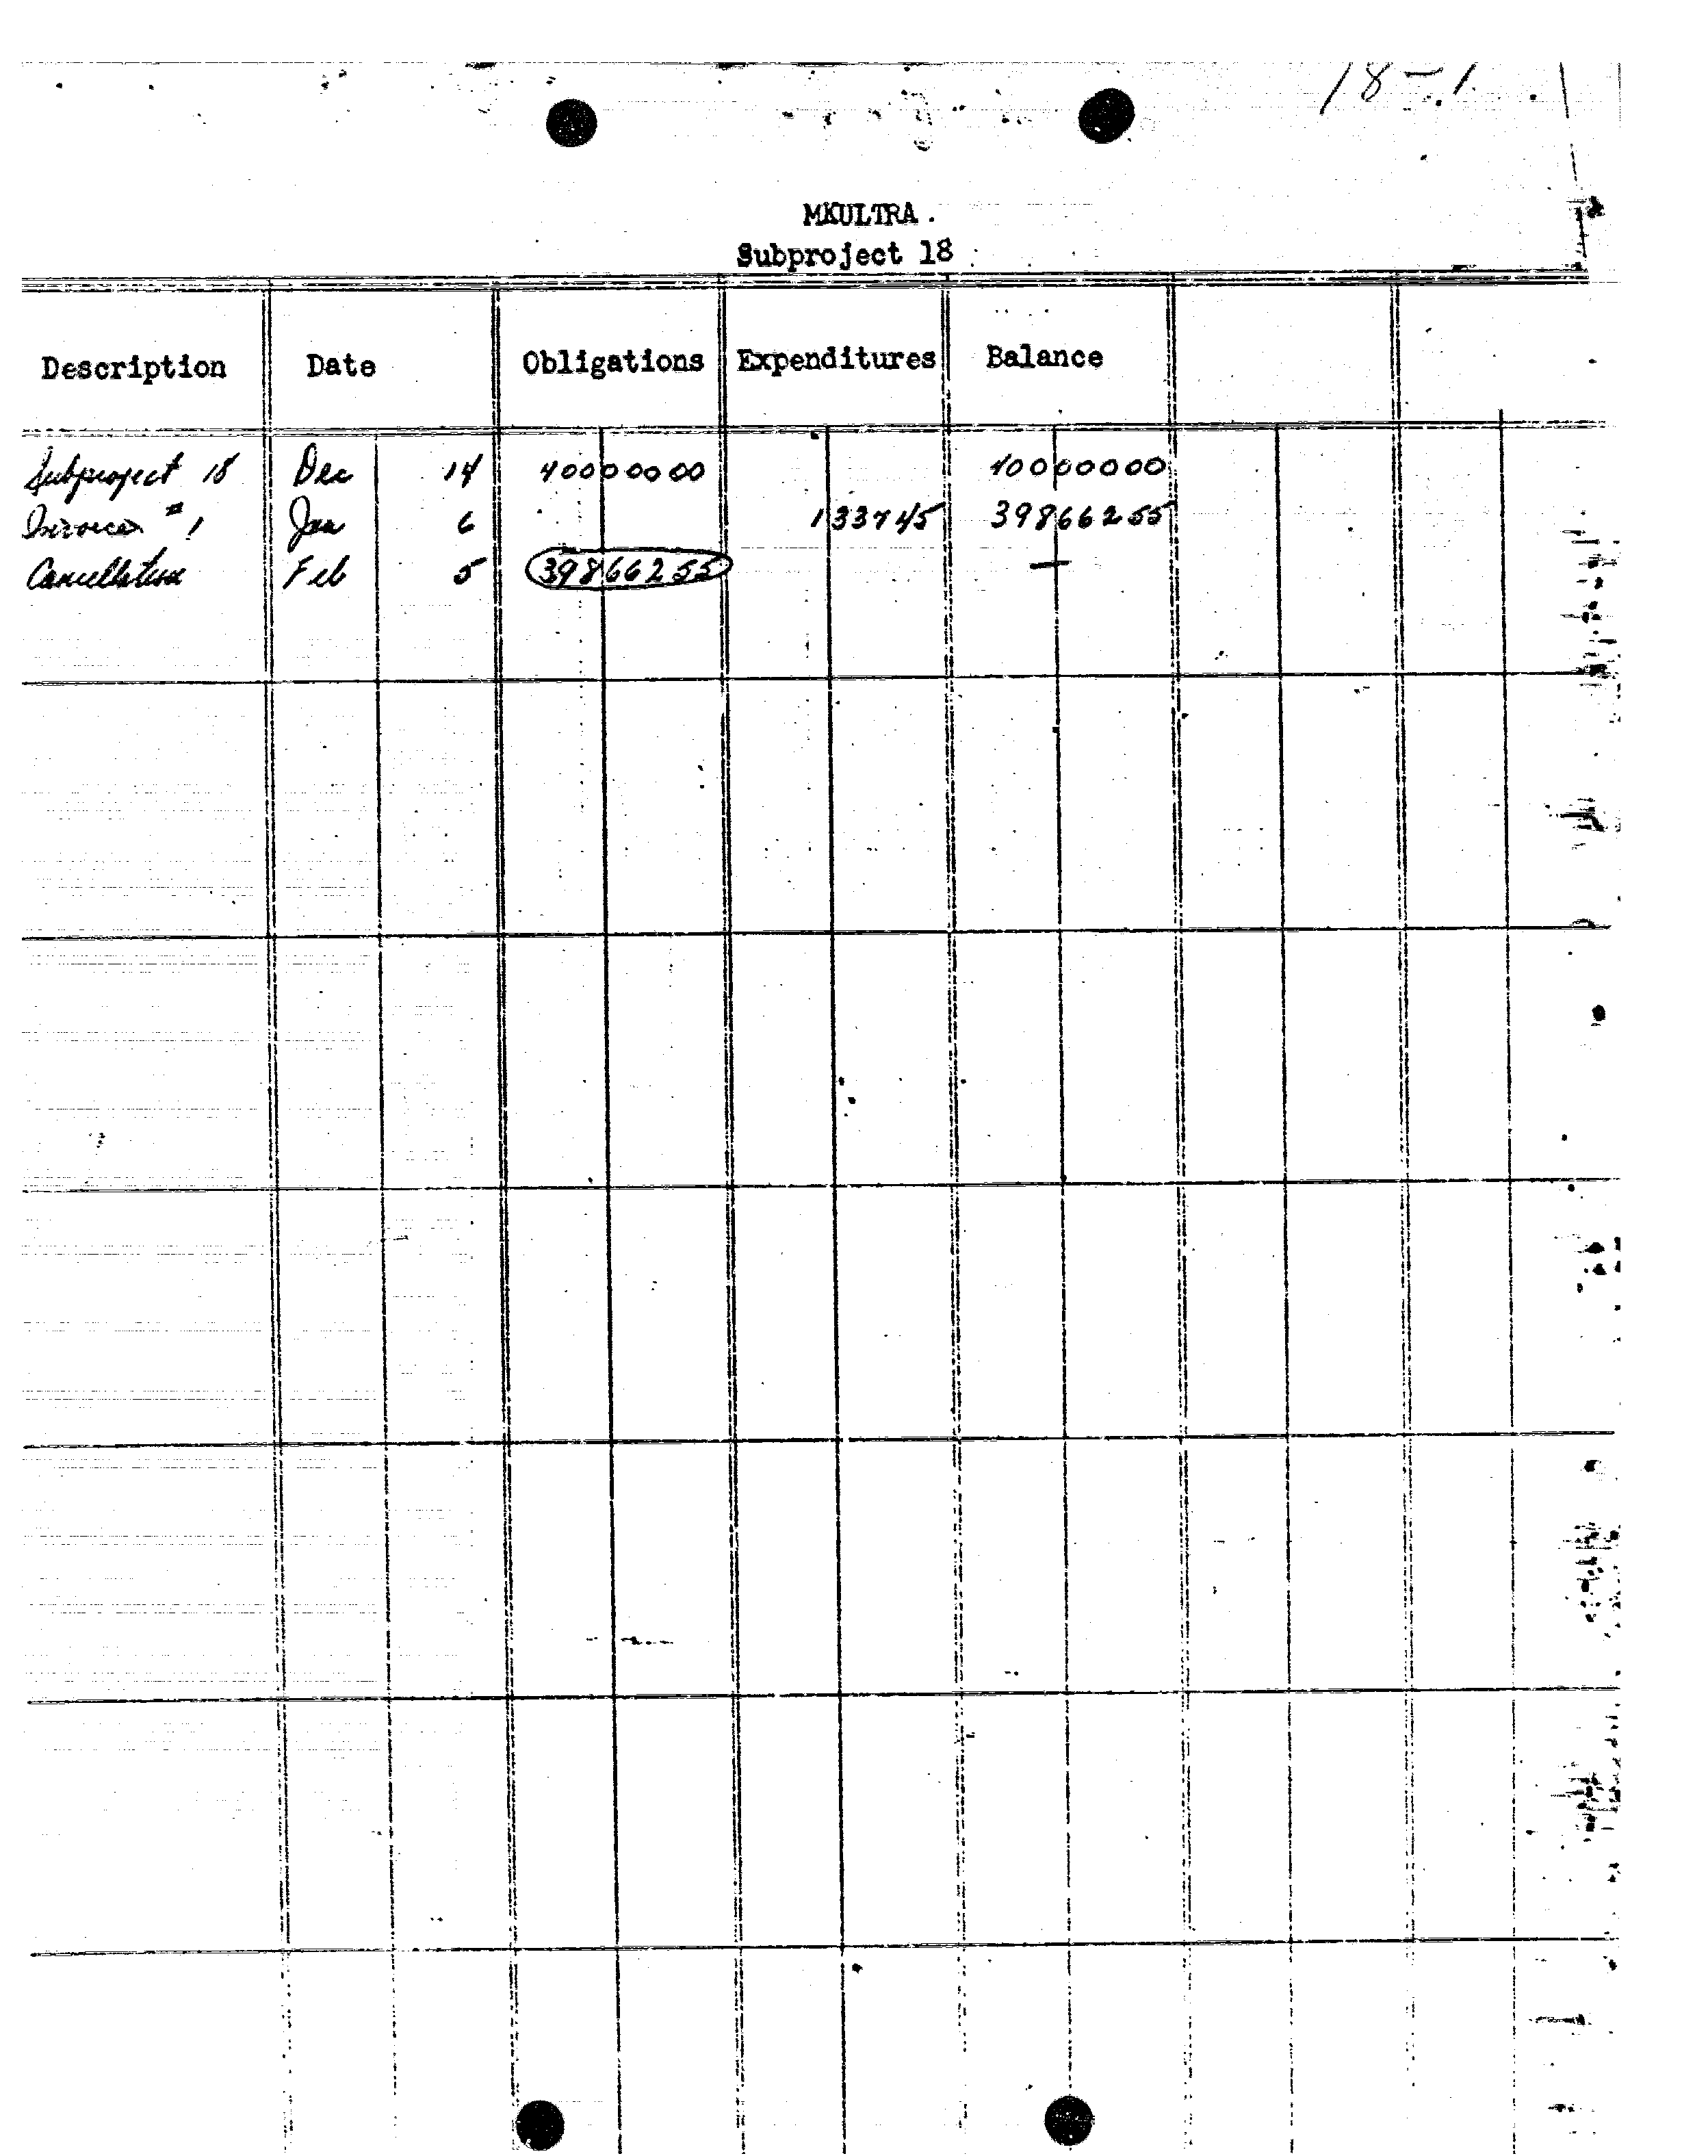 18-1
MKULTRA.
Subproject 18
Description Date Obligations Expenditures Balance
Subproject 18 Dec 14 40000000 40000000
Invoice #1 Jan 6 133745 39866255
Cancellation Feb 5 39866255 —